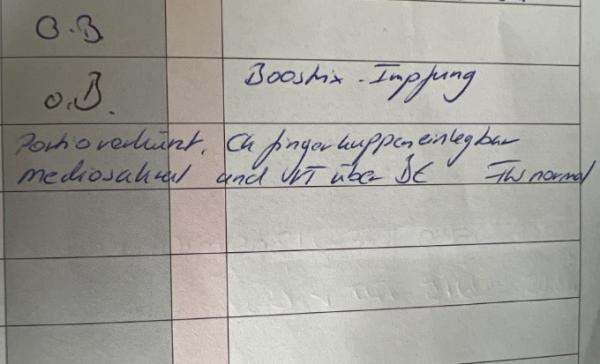 O.B
Boostrix-Impfung
o.B.
Portio verkürzt. CK fingerkuppeneinlegbar
mediosakral und VT über BE FW normal